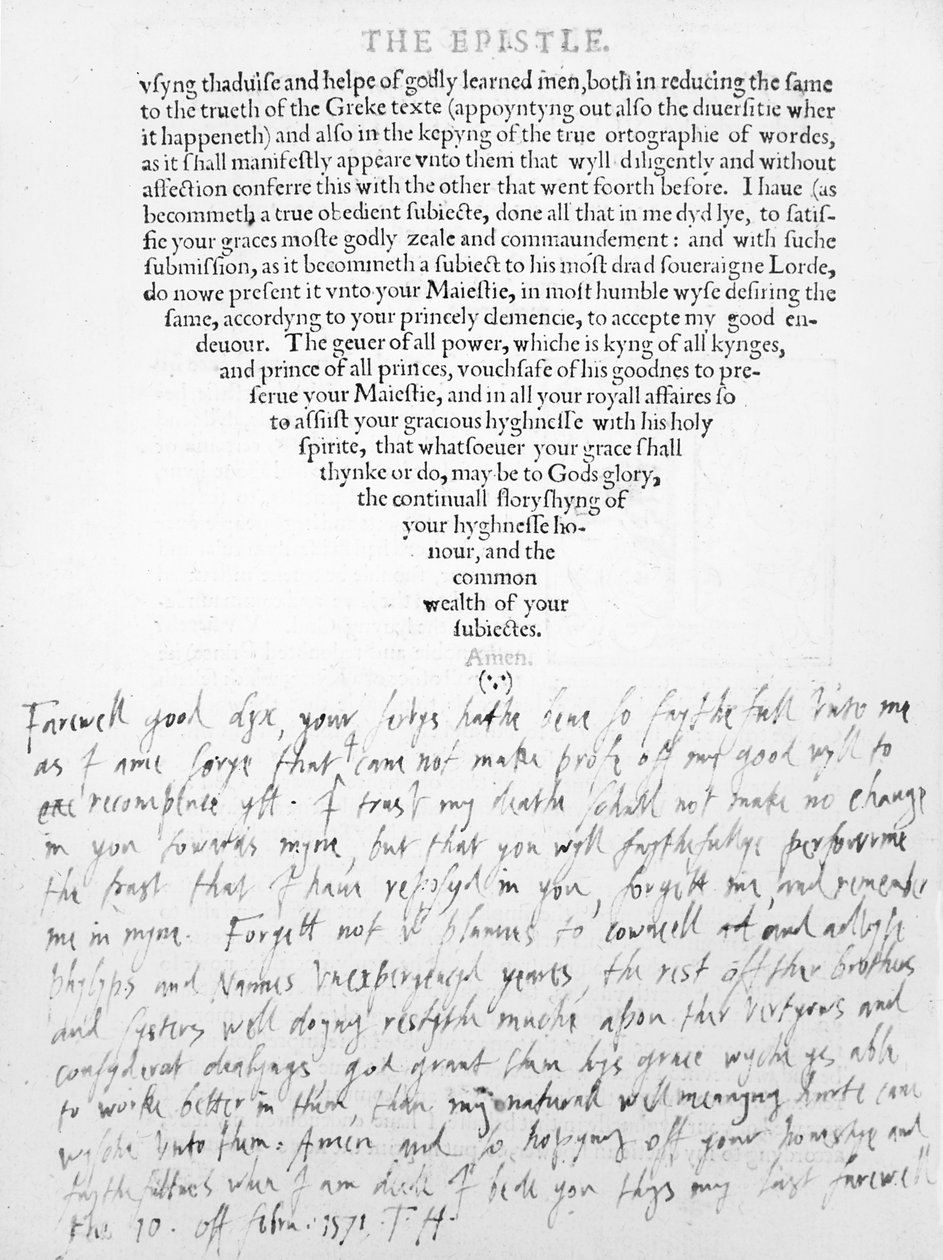 THE EPISTLE.
vsyng thaduiſe and helpe of godly learned men, both in reducing the ſame
to the trueth of the Greke texte (appoyntyng out alſo the diuerſitie wher
it happeneth) and alſo in the kepyng of the true ortographie of wordes,
as it ſhall manifeſtly appeare vnto them that wyll diligently and without
affection conferre this with the other that went foorth before. I haue (as
becommeth a true obedient ſubiecte, done all that in me dyd lye, to ſatiſ-
fie your graces moſte godly zeale and commaundement: and with ſuche
ſubmiſſion, as it becommeth a ſubiect to his moſt drad ſoueraigne Lorde,
do nowe preſent it vnto your Maieſtie, in moſt humble wyſe deſiring the
ſame, accordyng to your princely clemencie, to accepte my good en-
deuour. The geuer of all power, whiche is kyng of all kynges,
and prince of all princes, vouchſafe of his goodnes to pre-
ſerue your Maieſtie, and in all your royall affaires ſo
to aſſiiſt your gracious hyghneſſe with his holy
ſpirite, that whatſoeuer your grace ſhall
thynke or do, may be to Gods glory,
the continuall floryſhyng of
your hyghneſſe ho-
nour, and the
common
wealth of your
ſubiectes.
Amen.
Farewell good dyx, your serbys hathe bene so faythefull unto me
as I ame sorye that I cane not make profe off my good wyll to
recompence ytt. I trust my deathe schall not make no change
in you towards myne, but that you wyll faythefullye perfourme
the trust that I have reposyd in you, forgett me, and remember
me in myne. Forgett not to cowncell and advyse
phylyps and Nannes unexperyencyd yeares, the rest off ther brothers
and systers well doyng restythe muche apon ther vertyous and
consyderat dealyngs god grant them hys grace wyche ys able
to worke better in them, than my naturall well meanyng harte can
wysche unto them. Amen and so hopyng off your honestye and
faythefullnes when I am deade I bede you thys my last farewell
the 10. off febru. 1571. T. H.